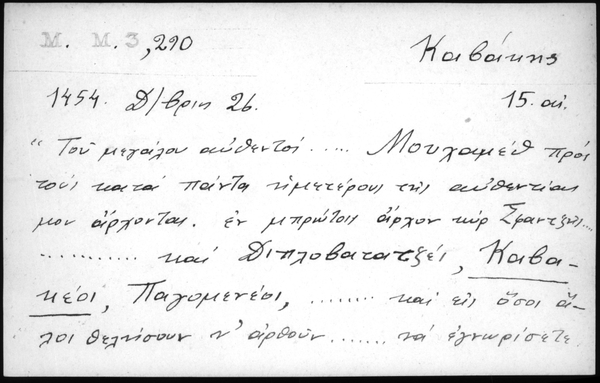 M. M. 3, 290
Καβάκης
1454. Δ/βριη 26.
15. αἰ.
"Τοῦ μεγάλου αὐθεντοί ..... Μουχαμέθ πρός
τούς κατά πάντα ἡμετέρους τῆς αὐθεντίας
μου ἄρχονται. ἐν μπρώτοις ἄρχον κύρ Σφαντζῆς....
........... καί Διπλοβαταζέϊ, Καβα-
κέοι, Παγομενέοι, ........ καί εἰς ὅσοι ἄ-
λοι θελήσουν ν' ἀρθοῦν ....... νά ἐγνωρίσετε